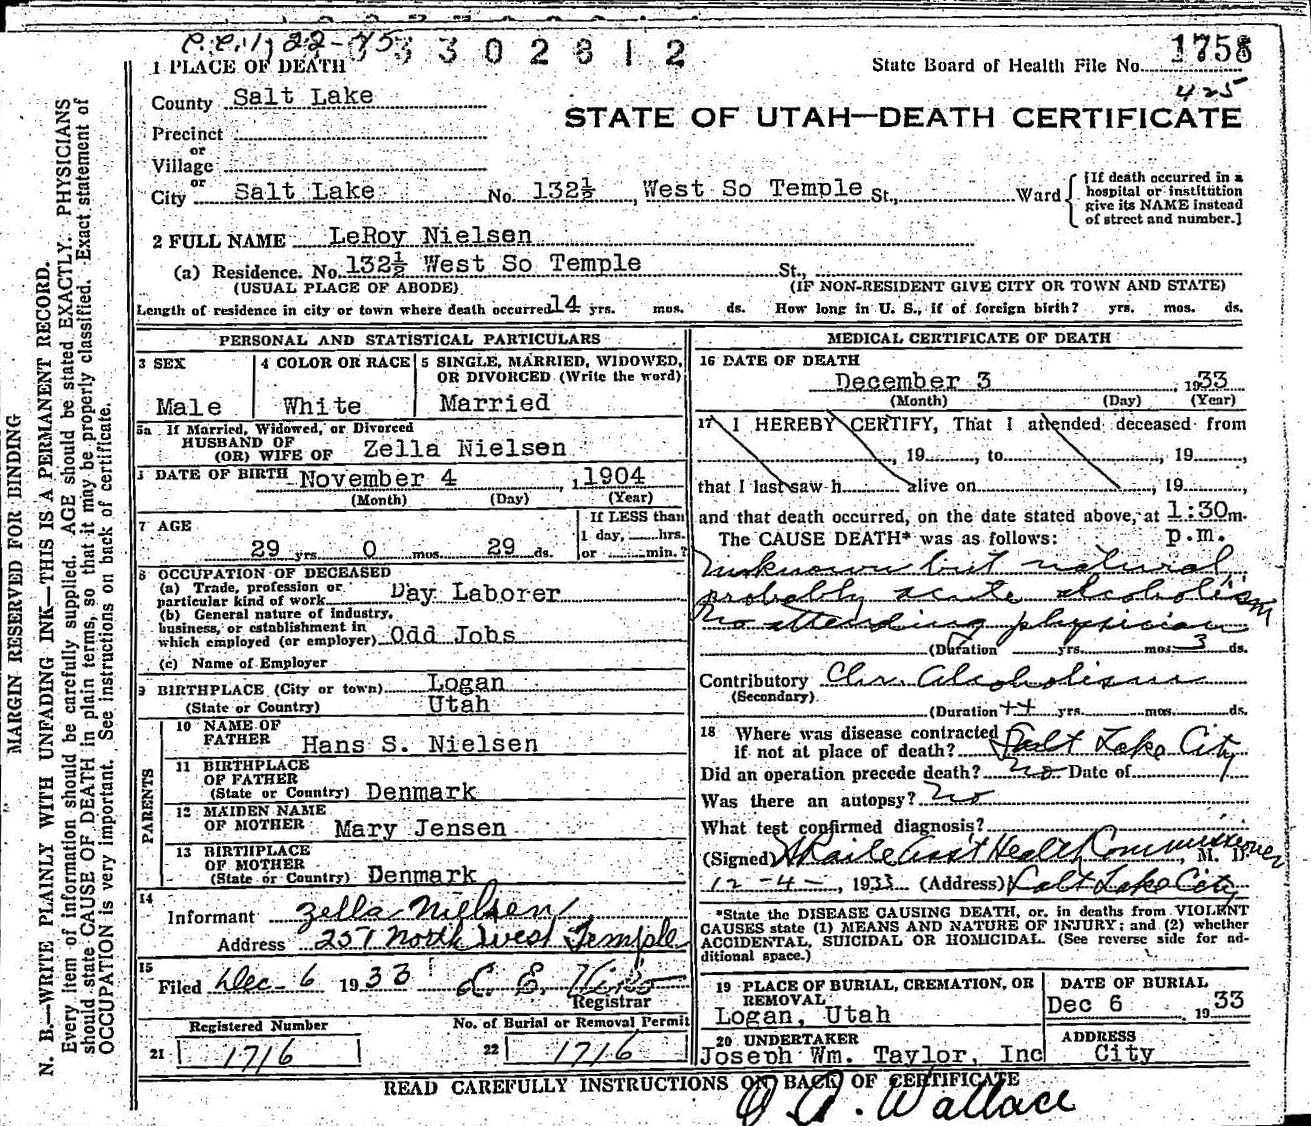 C.C. 1, 22-45 3302812
1758
State Board of Health File No.
425
STATE OF UTAH—DEATH CERTIFICATE
1 PLACE OF DEATH
County Salt Lake
Precinct
or
Village
or
City Salt Lake No. 132½, West So Temple St., Ward
[If death occurred in a hospital or institution give its NAME instead of street and number.]
2 FULL NAME LeRoy Nielsen
(a) Residence. No. 132½ West So Temple St.,
(USUAL PLACE OF ABODE) (IF NON-RESIDENT GIVE CITY OR TOWN AND STATE)
Length of residence in city or town where death occurred 14 yrs. mos. ds. How long in U. S., if of foreign birth? yrs. mos. ds.
PERSONAL AND STATISTICAL PARTICULARS
3 SEX
Male
4 COLOR OR RACE
White
5 SINGLE, MARRIED, WIDOWED,
OR DIVORCED (Write the word)
Married
5a If Married, Widowed, or Divorced
HUSBAND OF
(OR) WIFE OF Zella Nielsen
DATE OF BIRTH November 4, 1904
(Month) (Day) (Year)
7 AGE
29 yrs 0 mos. 29 ds.
If LESS than
1 day, hrs.
or min.?
8 OCCUPATION OF DECEASED
(a) Trade, profession or
particular kind of work Day Laborer
(b) General nature of industry,
business, or establishment in
which employed (or employer) Odd Jobs
(c) Name of Employer
9 BIRTHPLACE (City or town) Logan
(State or Country) Utah
PARENTS
10 NAME OF
FATHER Hans S. Nielsen
11 BIRTHPLACE
OF FATHER
(State or Country) Denmark
12 MAIDEN NAME
OF MOTHER Mary Jensen
13 BIRTHPLACE
OF MOTHER
(State or Country) Denmark
14
Informant Zella Nielsen
Address 257 North West Temple
15
Filed Dec 6 1933 L. E.
Registrar
Registered Number
21 1716
No. of Burial or Removal Permit
22 1716
MEDICAL CERTIFICATE OF DEATH
16 DATE OF DEATH
December 3, 1933
(Month) (Day) (Year)
17 I HEREBY CERTIFY, That I attended deceased from
, 19 , to , 19 ,
that I last saw h alive on , 19 ,
and that death occurred, on the date stated above, at 1:30 m.
The CAUSE DEATH* was as follows: p.m.
Unknown but natural
probably acute alcoholism
No attending physician
(Duration yrs. mos. 3 ds.
Contributory Chr. Alcoholism
(Secondary)
(Duration ++ yrs. mos. ds.
18 Where was disease contracted
if not at place of death? Salt Lake City
Did an operation precede death? no Date of
Was there an autopsy? No
What test confirmed diagnosis?
(Signed) Asst Health Commissioner, M. D.
12-4-, 1933 (Address) Salt Lake City
*State the DISEASE CAUSING DEATH, or, in deaths from VIOLENT
CAUSES state (1) MEANS AND NATURE OF INJURY; and (2) whether
ACCIDENTAL, SUICIDAL OR HOMICIDAL. (See reverse side for ad-
ditional space.)
19 PLACE OF BURIAL, CREMATION, OR
REMOVAL
Logan, Utah
DATE OF BURIAL
Dec 6, 1933
20 UNDERTAKER
Joseph Wm. Taylor, Inc
ADDRESS
City
READ CAREFULLY INSTRUCTIONS ON BACK OF CERTIFICATE
Wallace
MARGIN RESERVED FOR BINDING
N. B.—WRITE PLAINLY WITH UNFADING INK—THIS IS A PERMANENT RECORD.
Every item of information should be carefully supplied. AGE should be stated EXACTLY. PHYSICIANS
should state CAUSE OF DEATH in plain terms, so that it may be properly classified. Exact statement of
OCCUPATION is very important. See instructions on back of certificate.